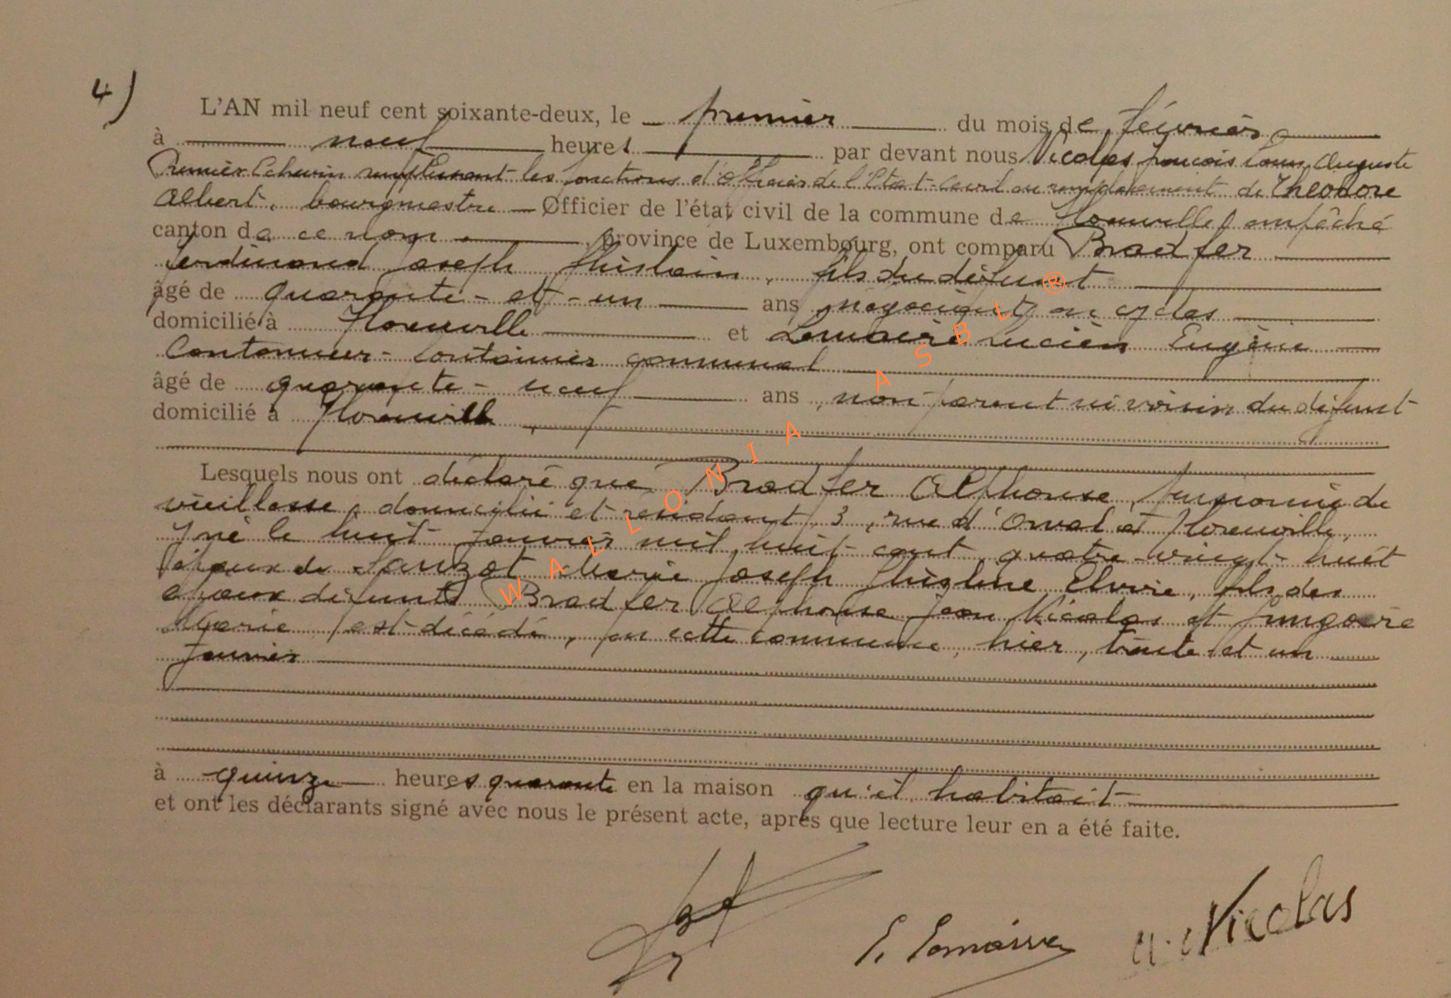 4)
L'AN mil neuf cent soixante-deux, le premier du mois de février
à neuf heures par devant nous Nicolas François Louis Auguste
Premier Echevin remplissant les fonctions d'officier de l'Etat-Civil en remplacement de Théodore
Albert, bourgmestre Officier de l'état civil de la commune de Florenville, empêché
canton de ce nom province de Luxembourg, ont comparu Bradfer
Ferdinand Joseph Ghislain, fils du défunt
âgé de quarante-et-un ans négociant en cycles
domicilié à Florenville et Lemaire Lucien Eugène
Cantonnier-fontainier communal
âgé de quarante-neuf ans, non parent ni voisin du défunt
domicilié à Florenville,
Lesquels nous ont déclaré que Bradfer Alphonse, pensionné de
vieillesse, domicilié et résidant 3, rue d'Orval à Florenville,
y né le huit janvier mil huit cent quatre-vingt-huit
époux de Sauzot Marie Joseph Ghisline Elvire, fils des
époux défunts Bradfer Alphonse Jean Nicolas et
Marie est décédé, en cette commune, hier, trente et un
janvier
à quinze heures quarante en la maison qu'il habitait
et ont les déclarants signé avec nous le présent acte, après que lecture leur en a été faite.
Lemaire
Nicolas
WALLONIA ASBL ®